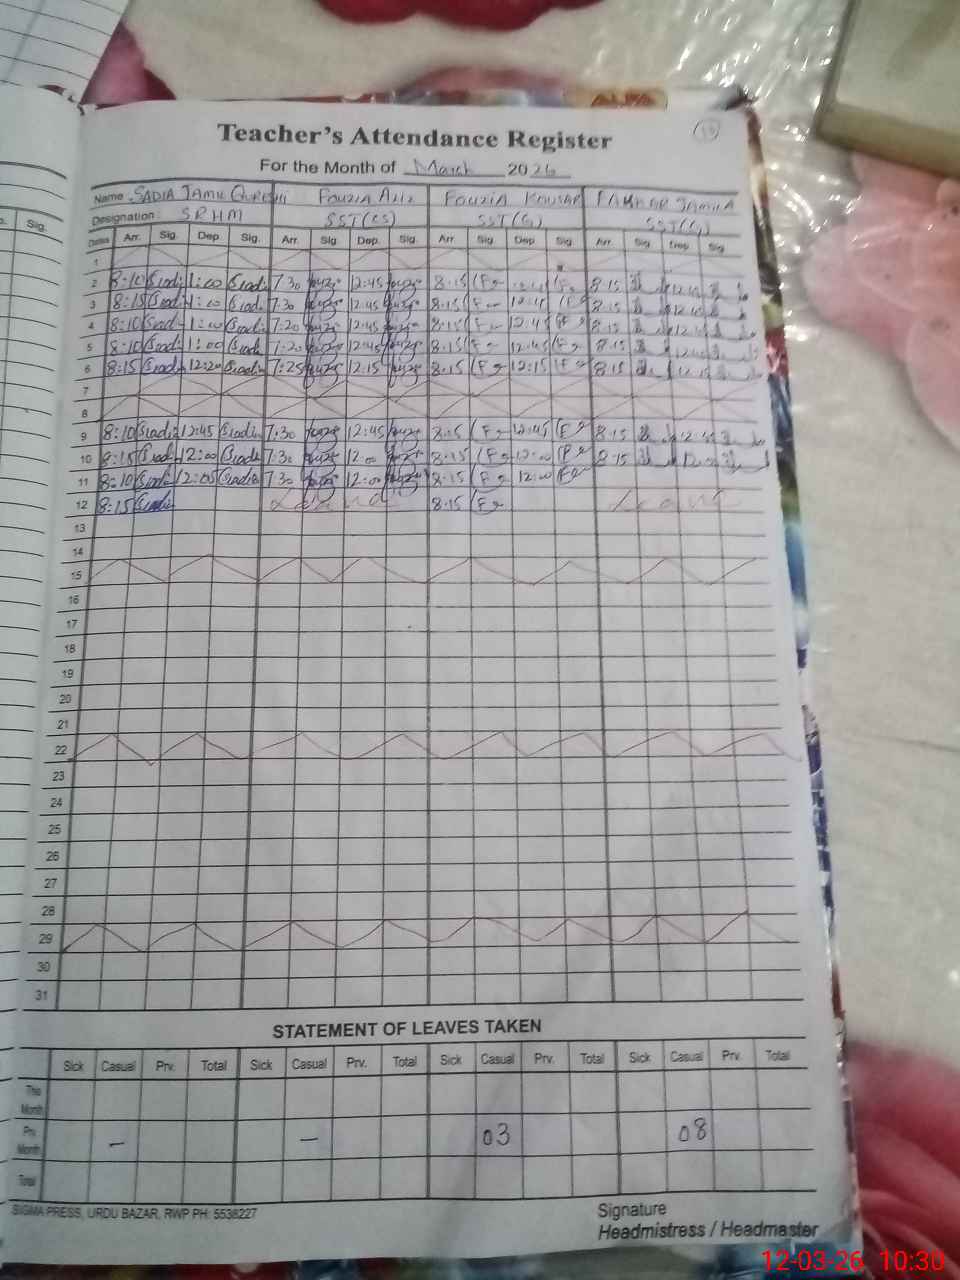 Teacher's Attendance Register
For the Month of March 2026
Name SADIA JAMIL QURESHI FOUZIA AZIZ FOUZIA KOUSAR JAMILA
Designation: SRHM SST(CS) SST(G) SST(G)
Sig. Dates Arr. Sig. Dep. Sig. Arr. Sig. Dep. Sig. Arr. Sig. Dep Sig. Arr. Sig Dep Sig
1
2 8:10 Sadia 1:00 Sadia 7:30 12:45 8:15 8:15 12:45
3 8:15 Sadia 1:10 Sadia 7:30 12:45 8:15 12:45 8:15 12:45
4 8:10 Sadia 1:00 Sadia 7:20 12:45 8:15 12:45 8:15 12:45
5 8:10 Sadia 1:00 Sadia 7:20 12:45 8:15 12:45 8:15 12:45
6 8:15 Sadia 12:20 Sadia 7:25 12:15 8:15 12:15 8:15 12:15
7
8
9 8:10 Sadia 12:45 Sadia 7:30 12:45 8:15 12:45 8:15 12:45
10 8:15 Sadia 12:00 Sadia 7:30 12:00 8:15 12:00 8:15 12:00
11 8:10 Sadia 12:05 Sadia 7:30 12:00 8:15 12:00
12 8:15 Sadia Leave 8:15 Leave
13
14
15
16
17
18
19
20
21
22
23
24
25
26
27
28
29
30
31
STATEMENT OF LEAVES TAKEN
Sick Casual Prv. Total Sick Casual Prv. Total Sick Casual Prv. Total Sick Casual Prv. Total
This Month
Pre Month – – 03 08
Total
SIGMA PRESS, URDU BAZAR, RWP PH: 5538227
Signature
Headmistress / Headmaster
12-03-26 10:30